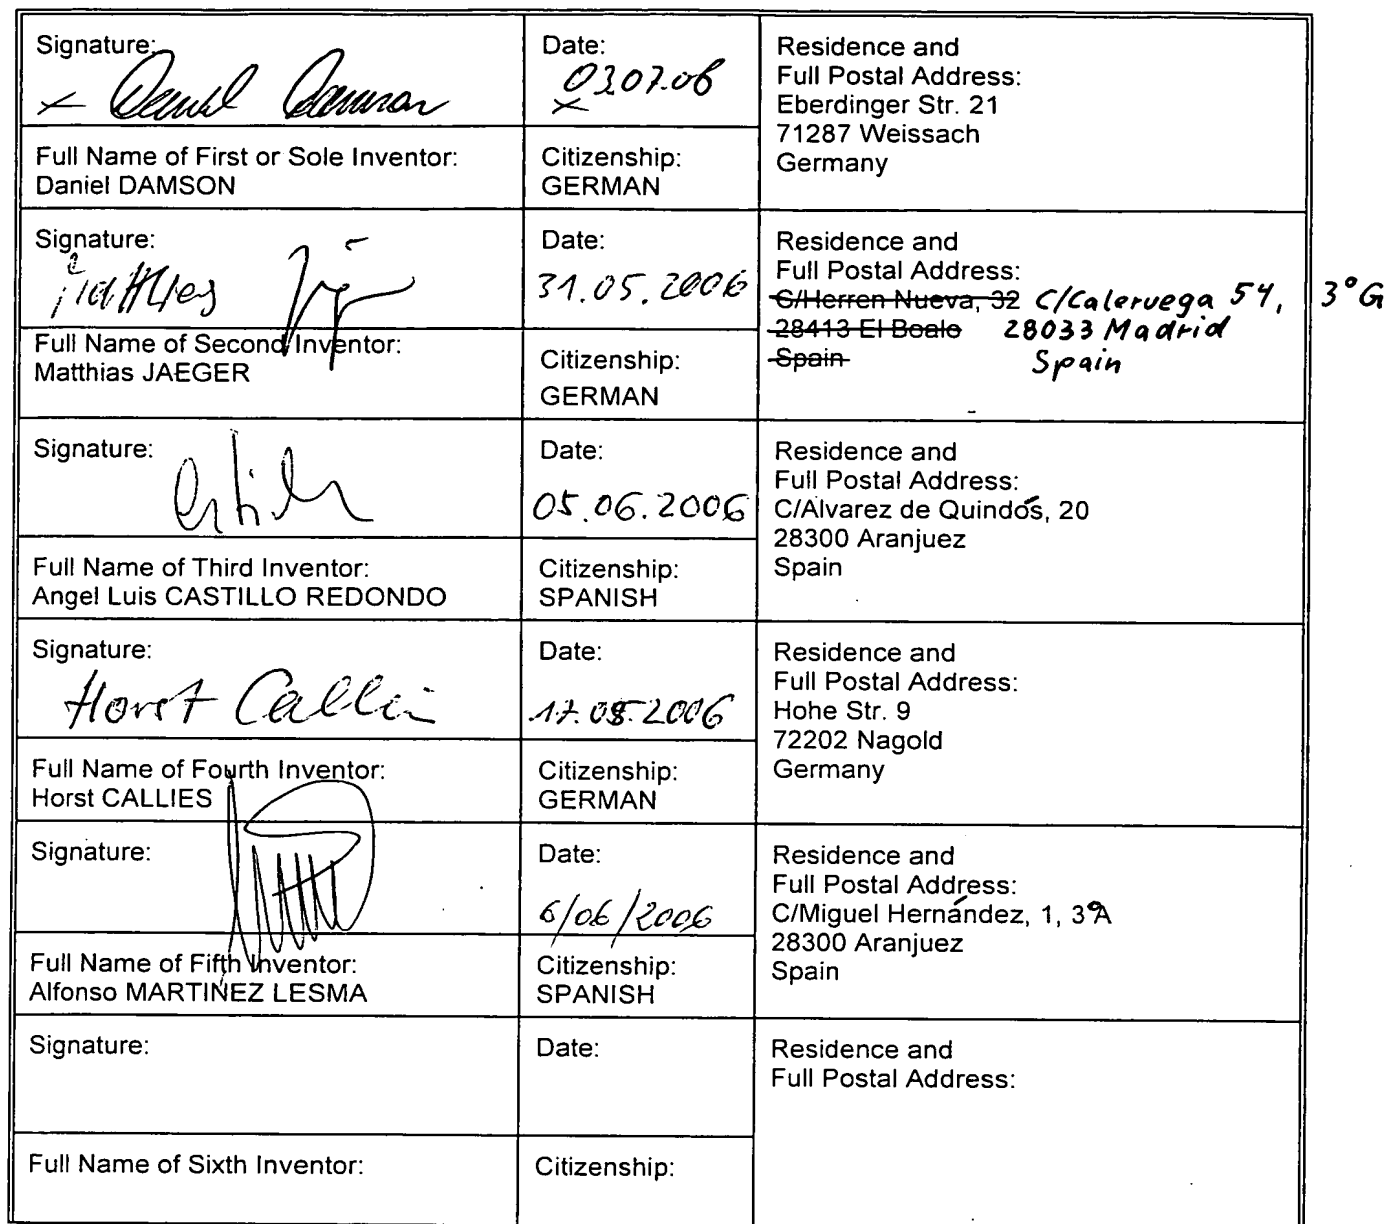 Signature:
Daniel Damson
Date:
03.07.06
Residence and
Full Postal Address:
Eberdinger Str. 21
71287 Weissach
Germany
Full Name of First or Sole Inventor:
Daniel DAMSON
Citizenship:
GERMAN
Signature:
Matthias
Date:
31.05.2006
Residence and
Full Postal Address:
C/Herren Nueva, 32 C/Caleruega 54, 3°G
28413 El Boalo 28033 Madrid
Spain Spain
Full Name of Second Inventor:
Matthias JAEGER
Citizenship:
GERMAN
Signature:
Date:
05.06.2006
Residence and
Full Postal Address:
C/Alvarez de Quindós, 20
28300 Aranjuez
Spain
Full Name of Third Inventor:
Angel Luis CASTILLO REDONDO
Citizenship:
SPANISH
Signature:
Horst Callies
Date:
2006
Residence and
Full Postal Address:
Hohe Str. 9
72202 Nagold
Germany
Full Name of Fourth Inventor:
Horst CALLIES
Citizenship:
GERMAN
Signature:
Date:
6/06/2006
Residence and
Full Postal Address:
C/Miguel Hernández, 1, 3ºA
28300 Aranjuez
Spain
Full Name of Fifth Inventor:
Alfonso MARTINEZ LESMA
Citizenship:
SPANISH
Signature:
Date:
Residence and
Full Postal Address:
Full Name of Sixth Inventor:
Citizenship: